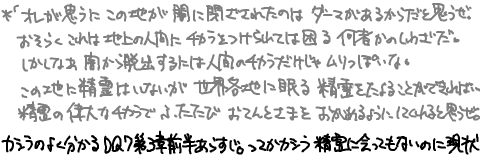 *「オレが思うに この地が 闇に閉ざされたのは ダーマがあるからだと思うぜ。
おそらく これは 地上の人間に チカラをつけられては困る 何者かのしわざだ。
しかしなあ 闇から脱出するには 人間のチカラだけじゃ ムリっぽいな。
この地に精霊はいないが 世界各地に眠る 精霊をたよることができれば…
精霊の偉大なチカラで ふたたび おてんとさまを おがめるようにしてくれると思うぜ。
カシラのよく分かるDQ7第3章前半あらすじ。つーかカシラ 精霊に会ってもないのに現状